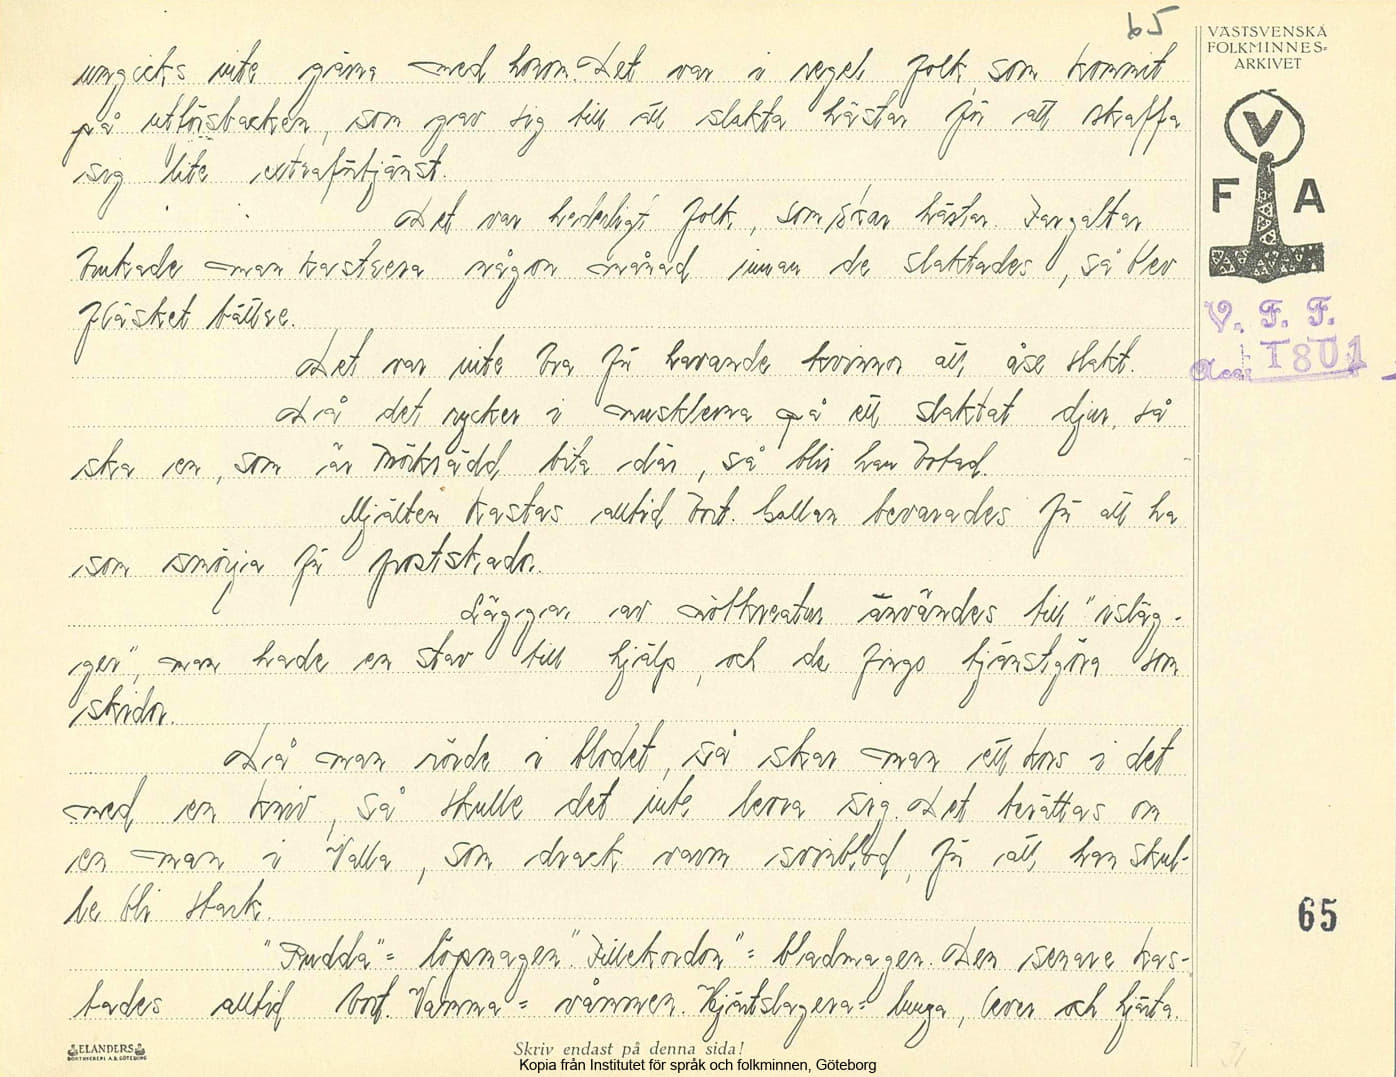 65
VÄSTSVENSKA
FOLKMINNES-
ARKIVET
umgicks inte gärna med honom. Det var i regel folk som kommit
på utförsbacken, som gav sig till att slakta hästar för att skaffa
sig lite extraförtjänst.
Det var hederligt folk, som skar hästar. Fargaltar
brukade man kastrera någon månad innan de slaktades, så blev
fläsket bättre.
Det var inte bra för havande kvinnor att åse slakt.
Då det rycker i musklerna på ett slaktat djur, så
ska en, som är mörkrädd bita där, så blir han botad.
Mjälten kastas alltid bort. Gallan bevarades för att ha
som smörja för frostskador.
Läggar av nötkreatur användes till "isläg-
gor", man hade en stav till hjälp, och de fingo tjänstgöra som
skidor.
Då man rörde i blodet, så skar man ett kors i det
med en kniv, så skulle det inte levra sig. Det berättas om
en man i Valla, som drack varm svinblod, för att han skul-
le bli stark.
"Pudda" = löpmagen. "Fillekordon" = bladmagen. Den senare kas-
tades alltid bort. Vamma = våmmen. Hjärtslagera = lunga, lever och hjärta.
V
F A
V. F. F.
Acc. 1801
65
ELANDERS
BOKTRYCKERI A.B. GÖTEBORG
Skriv endast på denna sida!
Kopia från Institutet för språk och folkminnen, Göteborg